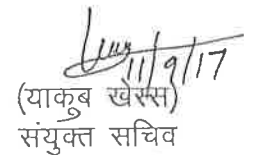 11/9/17
(याकुब खेस्स)
संयुक्त सचिव